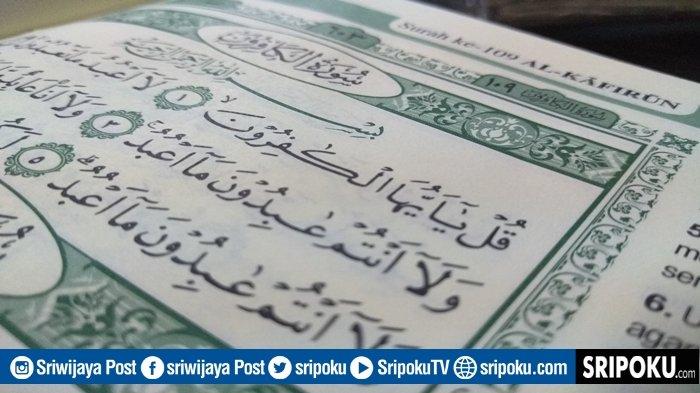 Surah ke-109 AL-KĀFIRŪN
٦٠٣
١٠٩
سُوْرَةُ الْكَافِرُوْنَ
بِسْمِ اللّٰهِ الرَّحْمٰنِ الرَّحِيْمِ
قُلْ يٰٓاَيُّهَا الْكٰفِرُوْنَۙ ١ لَآ اَعْبُدُ مَا
وَلَآ اَنْتُمْ عٰبِدُوْنَ مَآ اَعْبُدُۚ ٣ وَلَآ اَنَا۠ عَابِدٌ
وَلَآ اَنْتُمْ عٰبِدُوْنَ مَآ اَعْبُدُۗ ٥
5.
6.
Sriwijaya Post sriwijaya Post sripoku SripokuTV sripoku.com
SRIPOKU.com